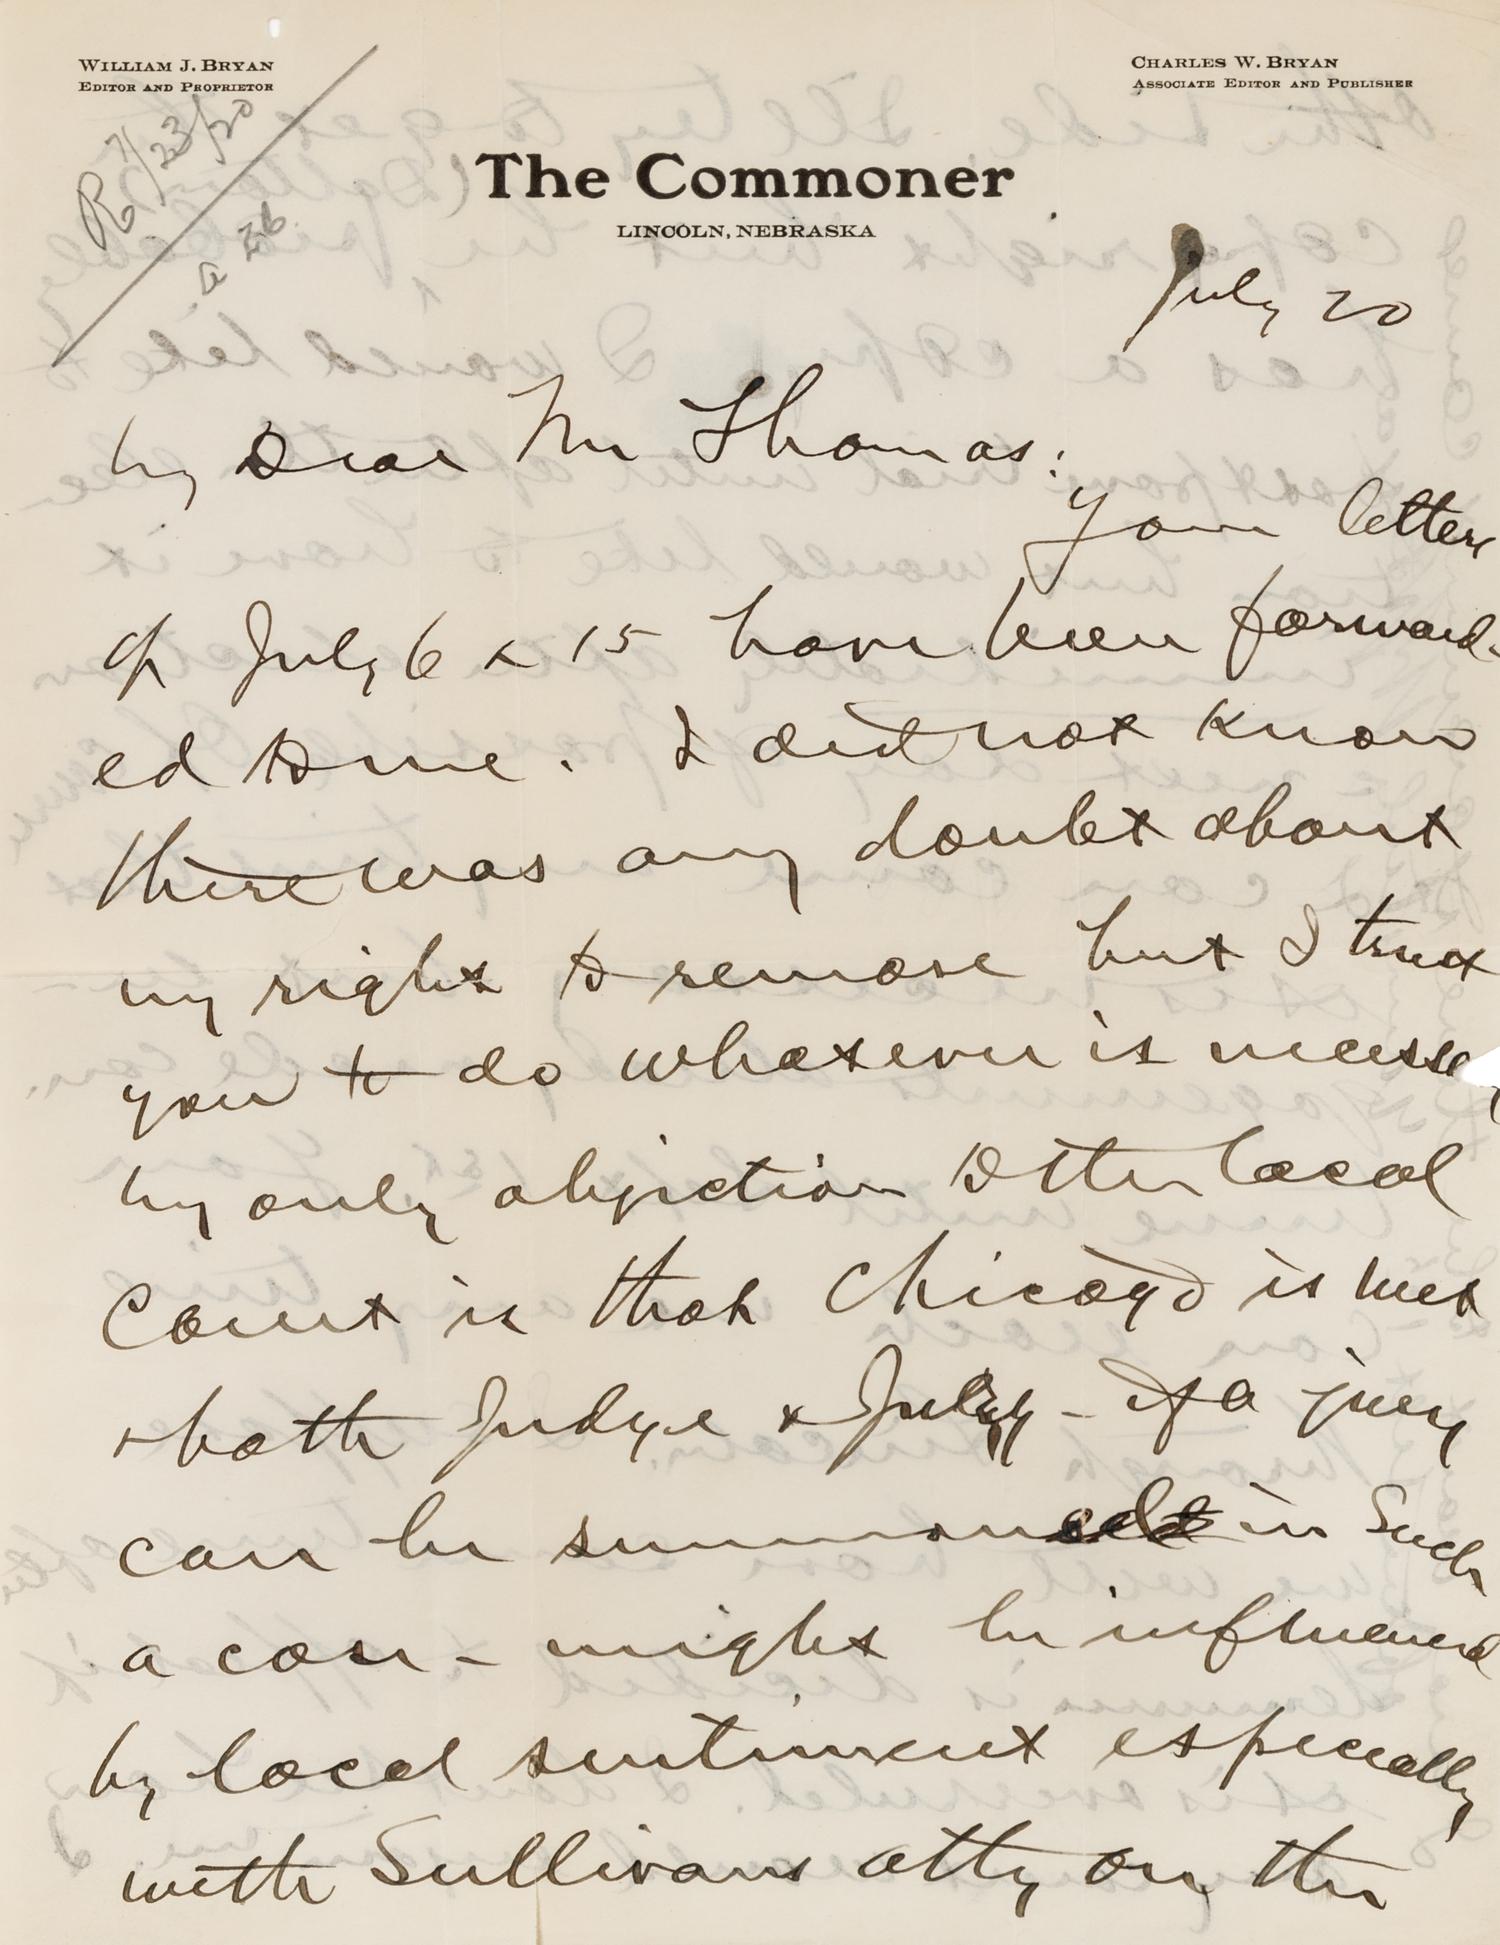 WILLIAM J. BRYAN
EDITOR AND PROPRIETOR
CHARLES W. BRYAN
ASSOCIATE EDITOR AND PUBLISHER
R 7/23/20
a 26
The Commoner
LINCOLN, NEBRASKA
July 20
My Dear Mr Thomas:
Your letters
of July 6 & 15 have been forward-
ed to me. I did not know
there was any doubt about
my right to remove but I trust
you to do whatever is necessary
My only objection to the local
Court is that Chicago is wet
& both Judge & Jury - if a jury
can be summoned in such
a case - might be influenced
by local sentiment especially
with Sullivans atty on the